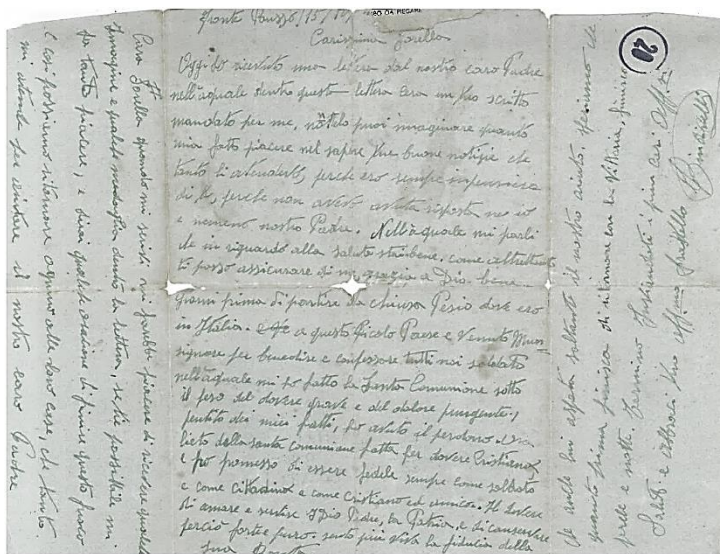 Carissima Sorella
Oggi ho ricevuto una lettera dal nostro caro Padre
nell'aquale dentro questa lettera cera un tuo scritto
mandato per me, non telo puoi imaginare quanto
mia fatto piacere nel sapere tue buone notizie che
tanto ti attendevo, perche ero sempre impensiero
di te, perche non avevo avuta risposta nes io
e nemeno nostro Padre. Nell'aquale mi parli
che in riguardo alla salute stai bene. come altrettanto
ti posso assicurare di me, grazia a Dio bene
giorni prima di partire da Chiusa Pesio dove ero
in Italia. a questo Picolo Paese e Venuto Mun
signore per benedire e confessare tutti noi soldati
nell'aquale mi so fatto la Santa Comunione sotto
il peso del dovere grave e del dolore pungente,
pentito dei miei fatti, ho avuto il perdono
lieto della santa comunione fatta per dovere Cristiano
e ho promesso di essere fedele sempre come soldato
e come cittadino e come cristiano ed amico. Il dovere
di amare e servire Dio Padre, la Patria, e di conservare
perciò forte e puro. sento più viva la fiducia della
sua
Cara Sorella quando mi scrivi mi farebbe piacere di ricevere qualche
imagine e qualche medaglia dentro la lettera, se ti è possibile mi
fa tanto piacere, e dirai qualche orazione di finire questo fuoco
e così possiamo ritornare ognuno alle loro case, che tanto
mi attende per sentire il nostro caro Padre
che solo lui aspetta soltanto il nostro aiuto. Speriamo che
quanto prima finisca di ritornare con la Vittoria, finire
prele e notti. Termino Inviandoti i più cari Aff.si
Saluti e abbracci tuo Aff.mo fratello
20